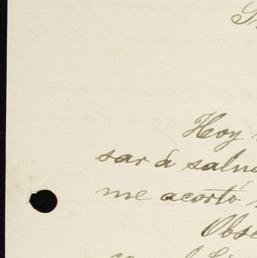 Hoy
sar á salu
me acortó
Obse